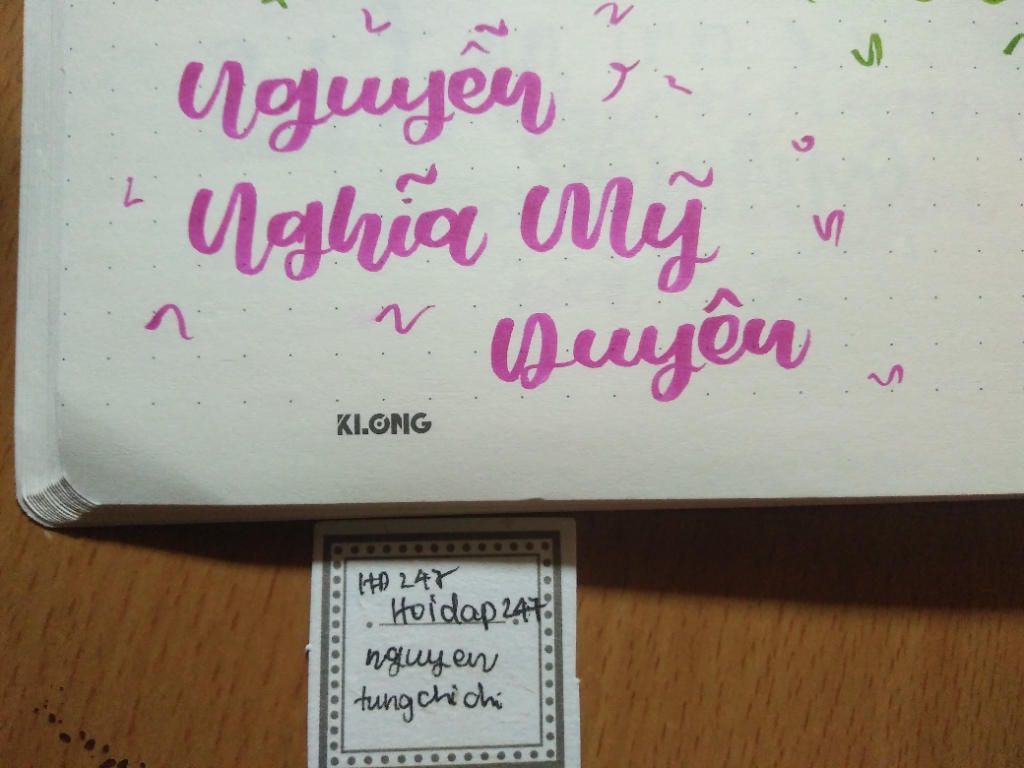 Nguyễn
Nghĩa Mỹ
Duyên
KLONG
HD 247
Hoidap247
nguyen
tungchichi